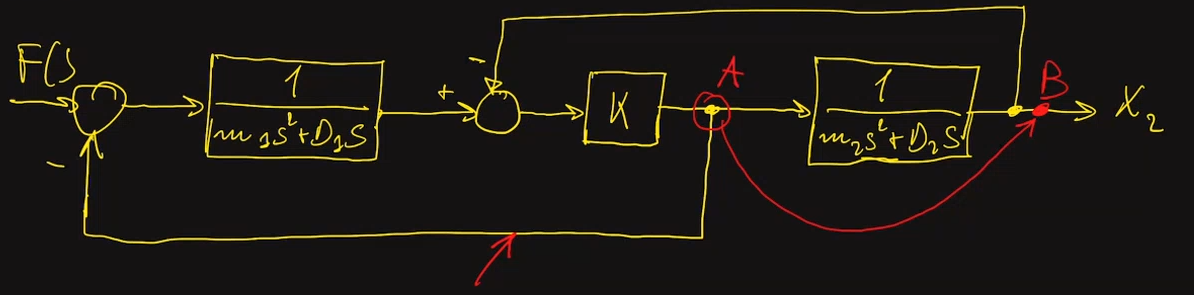 F(S
1
m₁s²+D₁s
-
+
-
K
A
1
m₂s²+D₂s
B
X₂